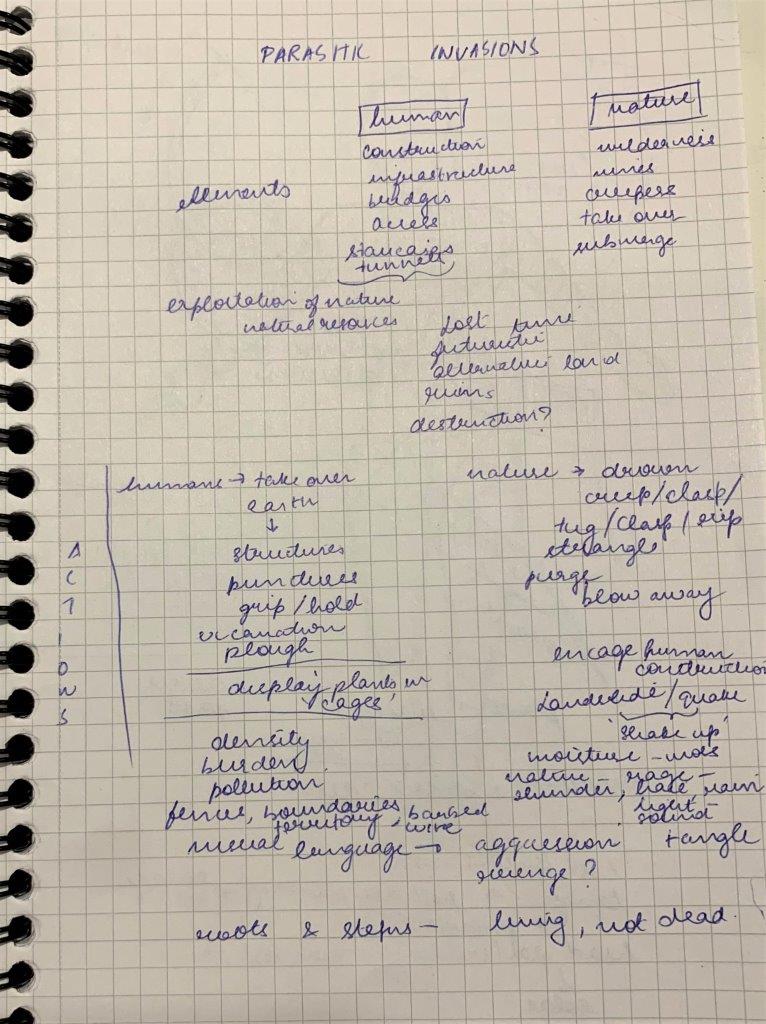 PARASITIC INVASIONS
human nature
construction wilderness
infrastructure
elements bridges creepers
access take over
staircases submerge
tunnels
exploitation of nature
natural resources
Lost time
futuristic
alternative land
ruins
destruction?
humans → take over nature → drown
earth creep/clasp/
↓ tug/clasp/grip
structures strangle
punctures purge
grip/hold blow away
plough
encage human
construction
display plants in
'cages' Landslide/quake
'shake up'
density moisture - moss
burden nature - rage -
pollution
fences, boundaries light -
territory, barbed wire sound
visual language → aggression tangle
revenge?
roots & steps - living, not dead.
ACTIONS